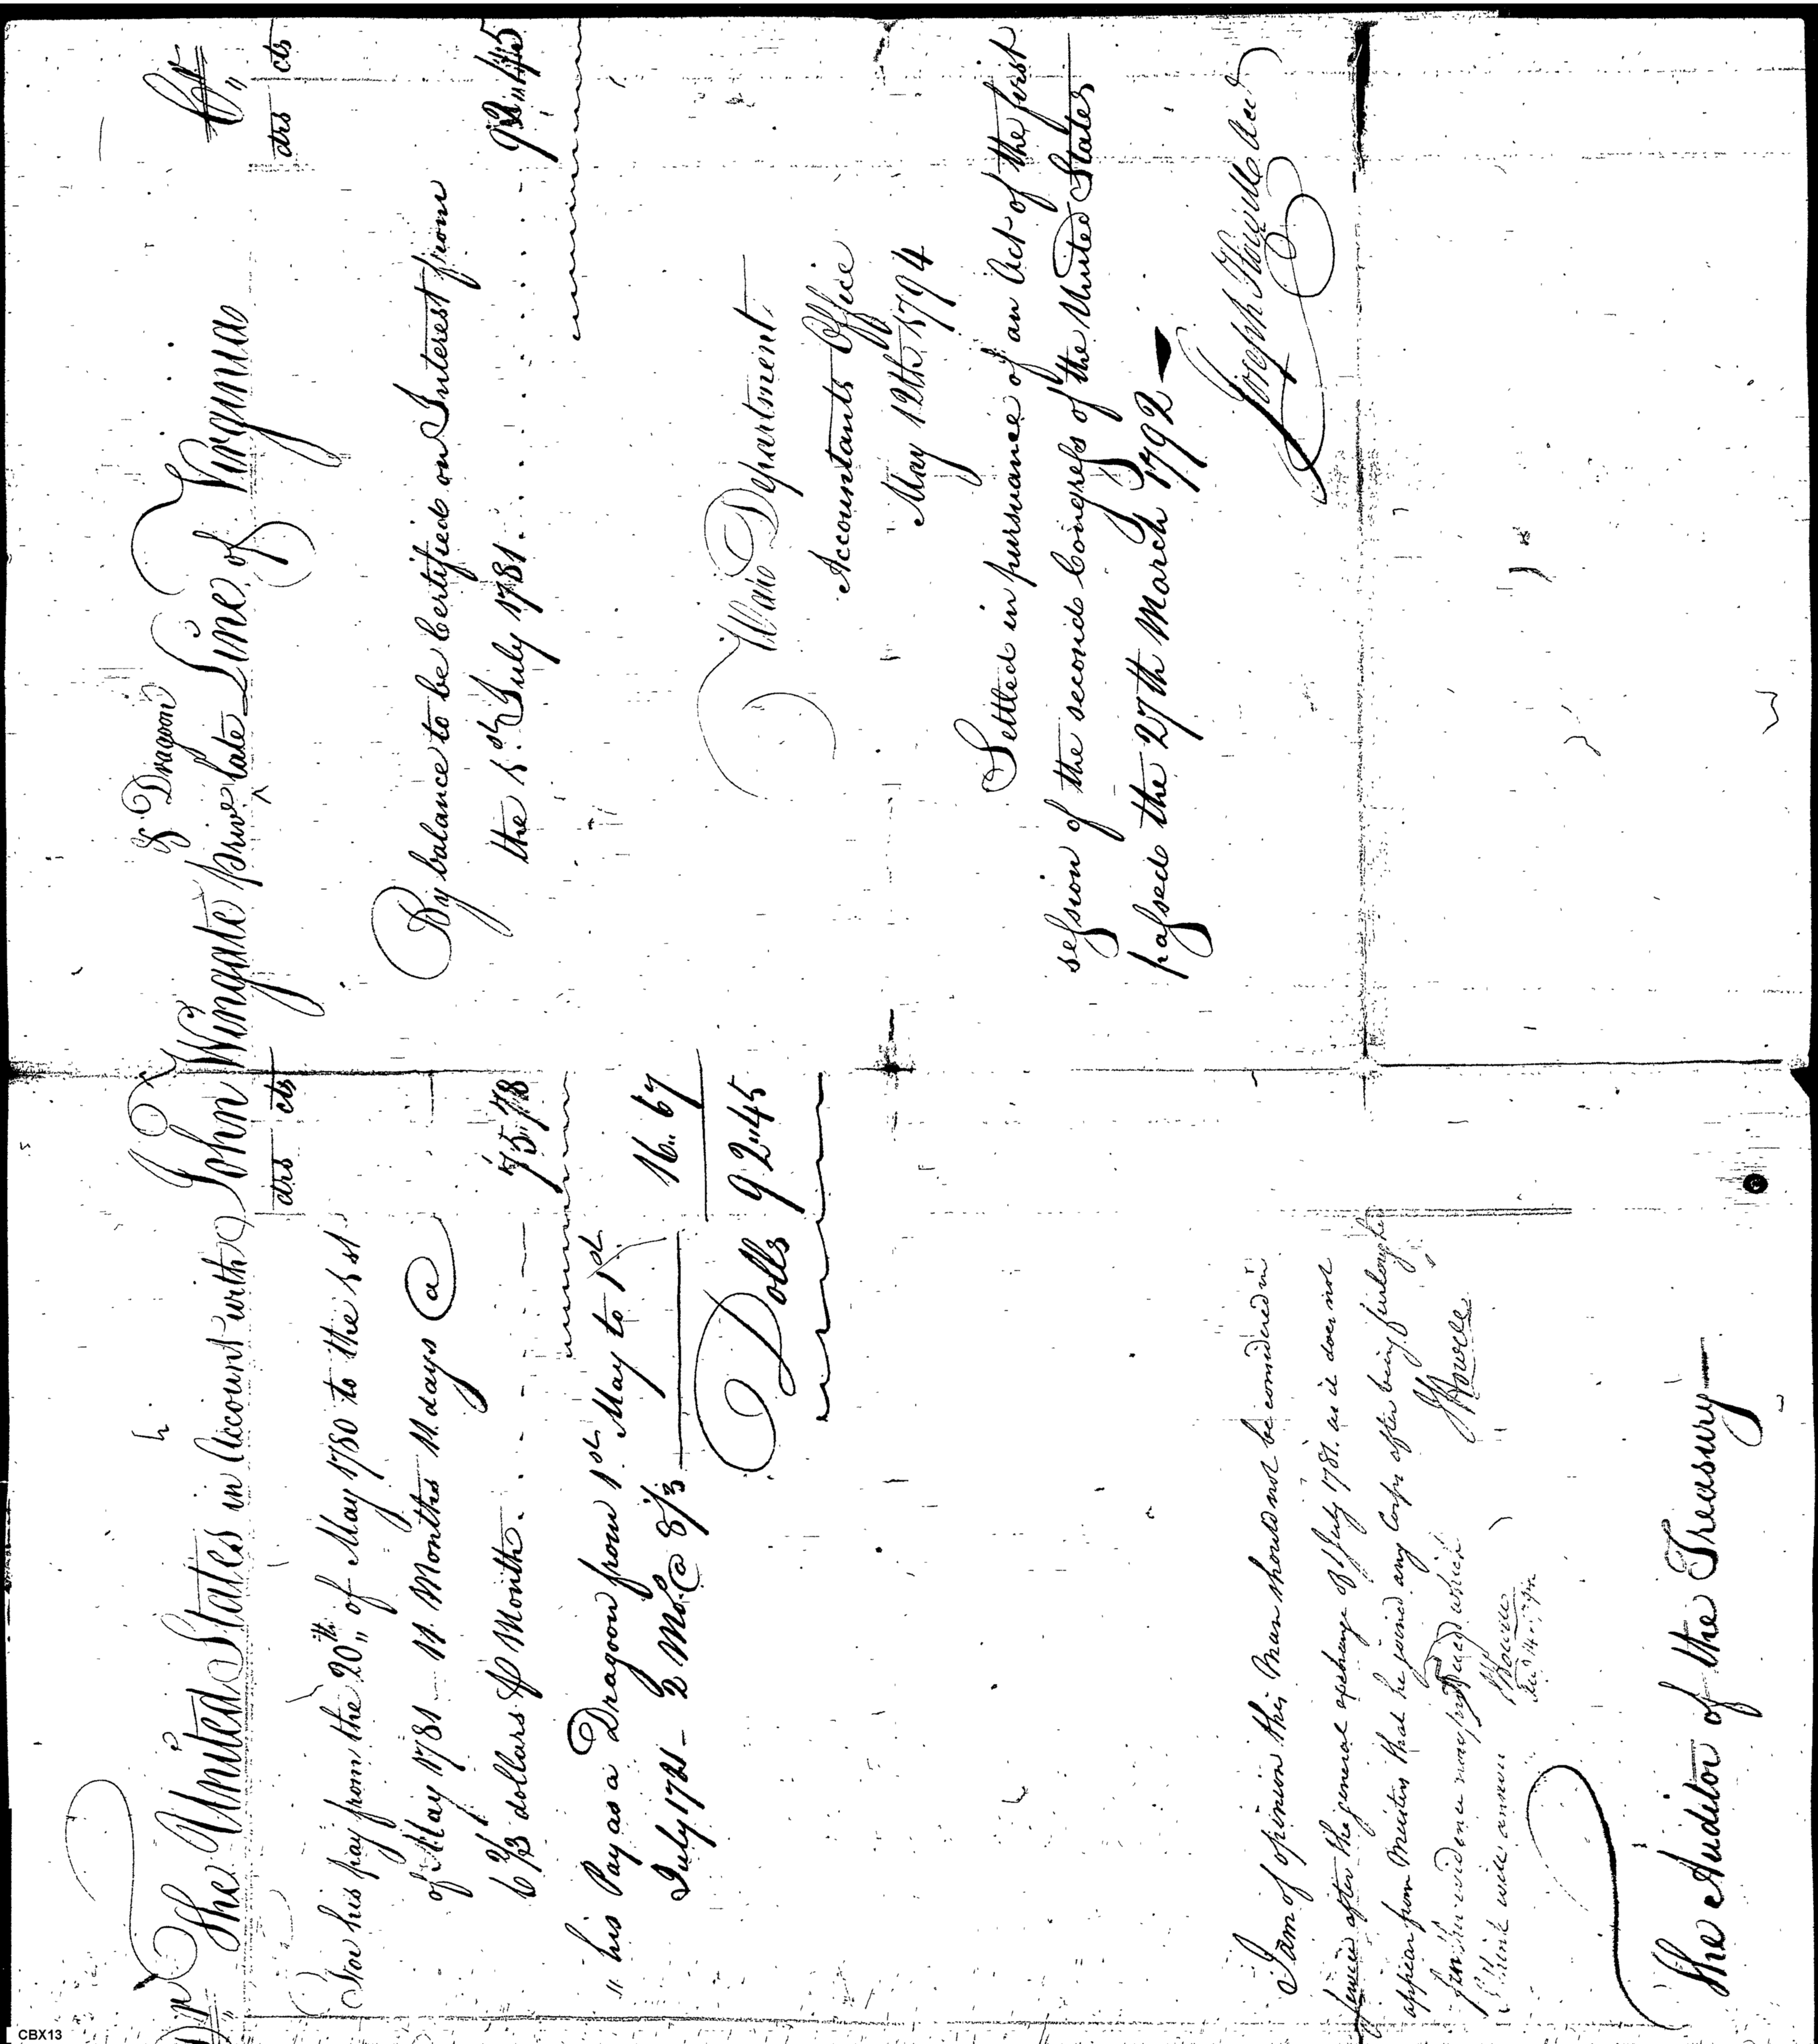 Dr The United States in Account with John Wingate private late & Dragoon Line of Virginia Cr
drs cts
For his pay from the 20th of May 1780 to the 1st
of May 1781 11 Months 11 days @
6 2/3 dollars ₱ Month. 75.78
" his Pay as a Dragoon from 1st May to 1st
July 1781 - 2 Mo. @ 8 1/3 16.. 67
Dolls 92"45
I am of opinion this Man should not be considered in
service after the general exchange of July 1781. as it does not
appear from Musters that he joined any Corps after being furloughed
JHowell
further evidence now produced which
I think will answer
JHowell
The Auditor of the Treasury
drs cts
By balance to be Certified on Interest from
the 1st July 1781. 92"45
War Department
Accountants Office
May 12th 1794
Settled in pursuance of an Act of the first
session of the second Congress of the United States
passed the 27th March 1792
Joseph Howell Acct
CBX13